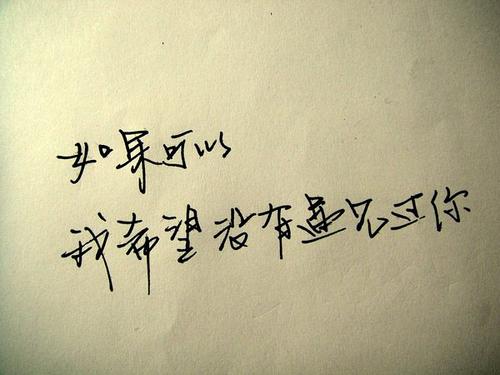 如果可以
我希望没有遇见过你